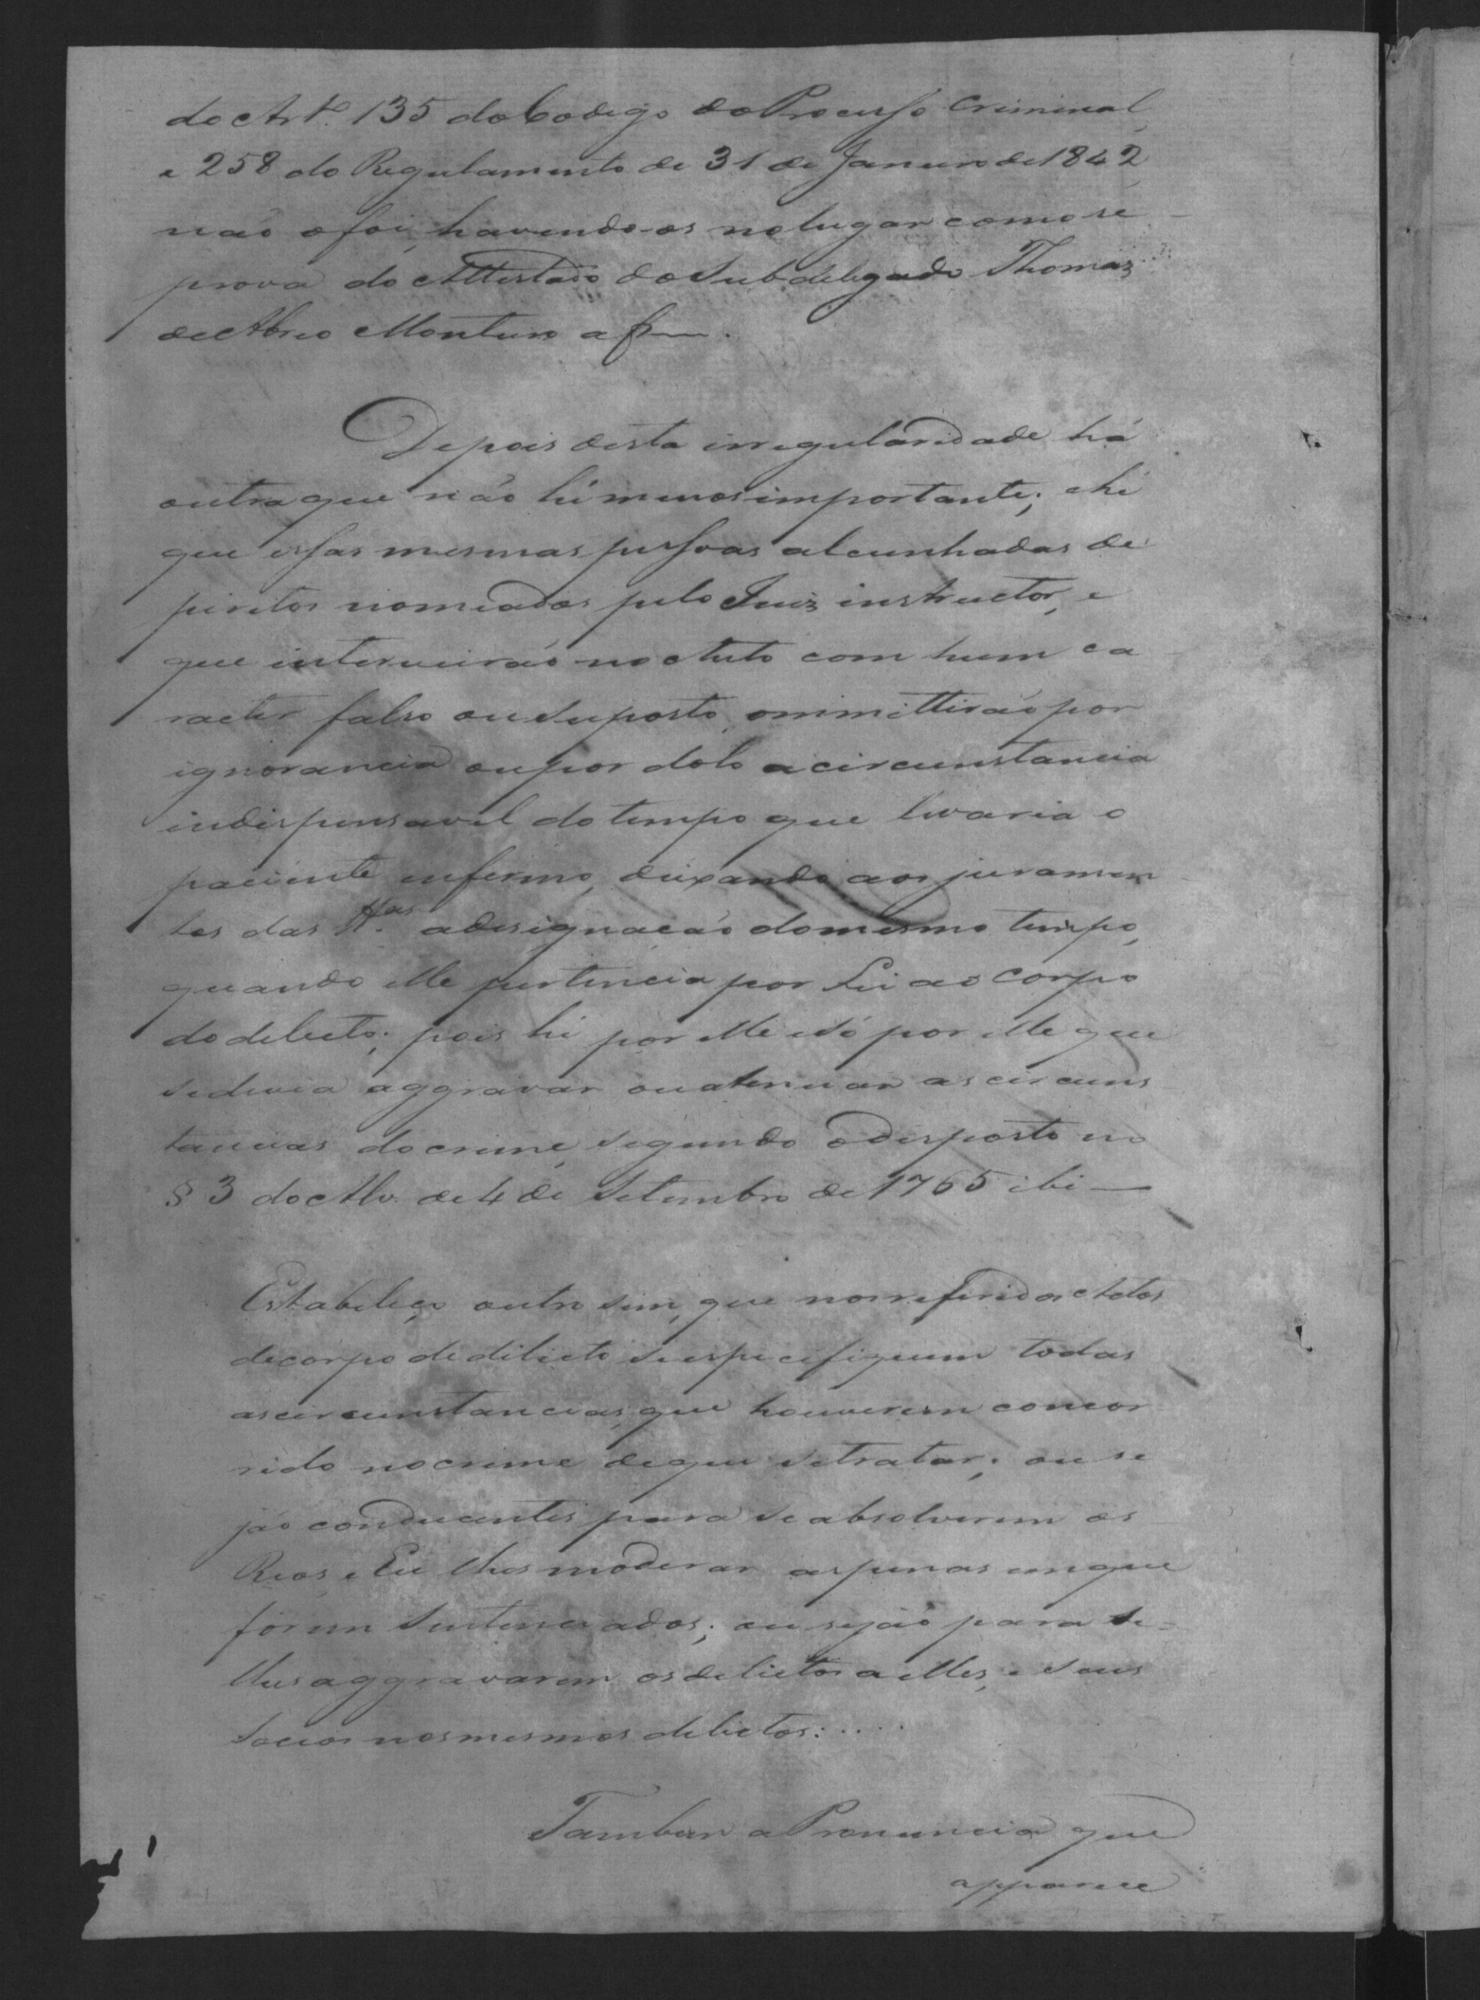 do Art.º 135 do Codigo do Processo Criminal
e 258 do Regulamento de 31 de Janeiro de 1842
não o foi, havendo-os no lugar como se
prova do Attestado do Subdelegado Thomaz
de Abreo Monteiro a f —.
Depois desta irregularidade há
outra que não hé menos importante; e hé
que essas mesmas pessoas alcunhadas de
peritos nomeados pelo Juiz instructor, e
que intervierão no Auto com hum ca
racter falso ou suposto, ommittirão por
ignorancia ou por dolo a circunstancia
indispensavel do tempo que levaria o
paciente enfermo, deixando aos juramen
tos das tt.as a designação do mesmo tempo,
quando elle pertencia por Lei ao corpo
do delicto; pois hé por elle e só por elle que
se devia aggravar ou atenuar as circuns
tancias do crime, segundo o disposto no
§ 3 do Alv. de 4 de Setembro de 1765 ibi —
Estabeleço outro sim, que nos referidos Autos
de corpo de delicto se especifiquem todas
as circunstancias, que houverem concor
rido no crime de que se tratar; ou se
jão conducentes para se absolverem os
Reos, e Eu lhes moderar as penas em que
forem sentenciados; ou sejão para se
lhes aggravarem os delictos a elles, e seus
socios nos mesmos delictos: ....
Tambem a Pronuncia que
apparece